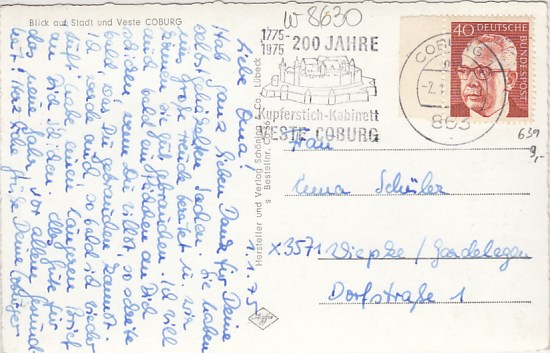 Blick auf Stadt und Veste COBURG
W 8630
1775-
1975
200 JAHRE
Kupferstich-Kabinett
VESTE COBURG
COBURG
-2.1.
863
40
DEUTSCHE
BUNDESPOST
639
9,-
Hersteller und Verlag Schöning & Co., Lübeck
Bestellnr.
1.1.75
Liebe Oma!
Hab ganz lieben Dank für Deine
selbstgehäkelten Sachen. Sie haben
uns große Freude bereitet u. wir
können sie gut gebrauchen. Ich will
auch bald ein Päckchen an Dich
schicken, wenn Du willst, so schreibe
bald, was Du gebrauchen kannst.
Ich werde Dir so bald ich wieder
Luft habe einen längeren Brief
an Dich schicken. Alles Gute für
das neue Jahr, vor allem Gesund-
heit! Herzliche Grüße Deine Coburger
Frau
Schüler
X3571 Wiepke / Gardelegen
Dorfstraße 1